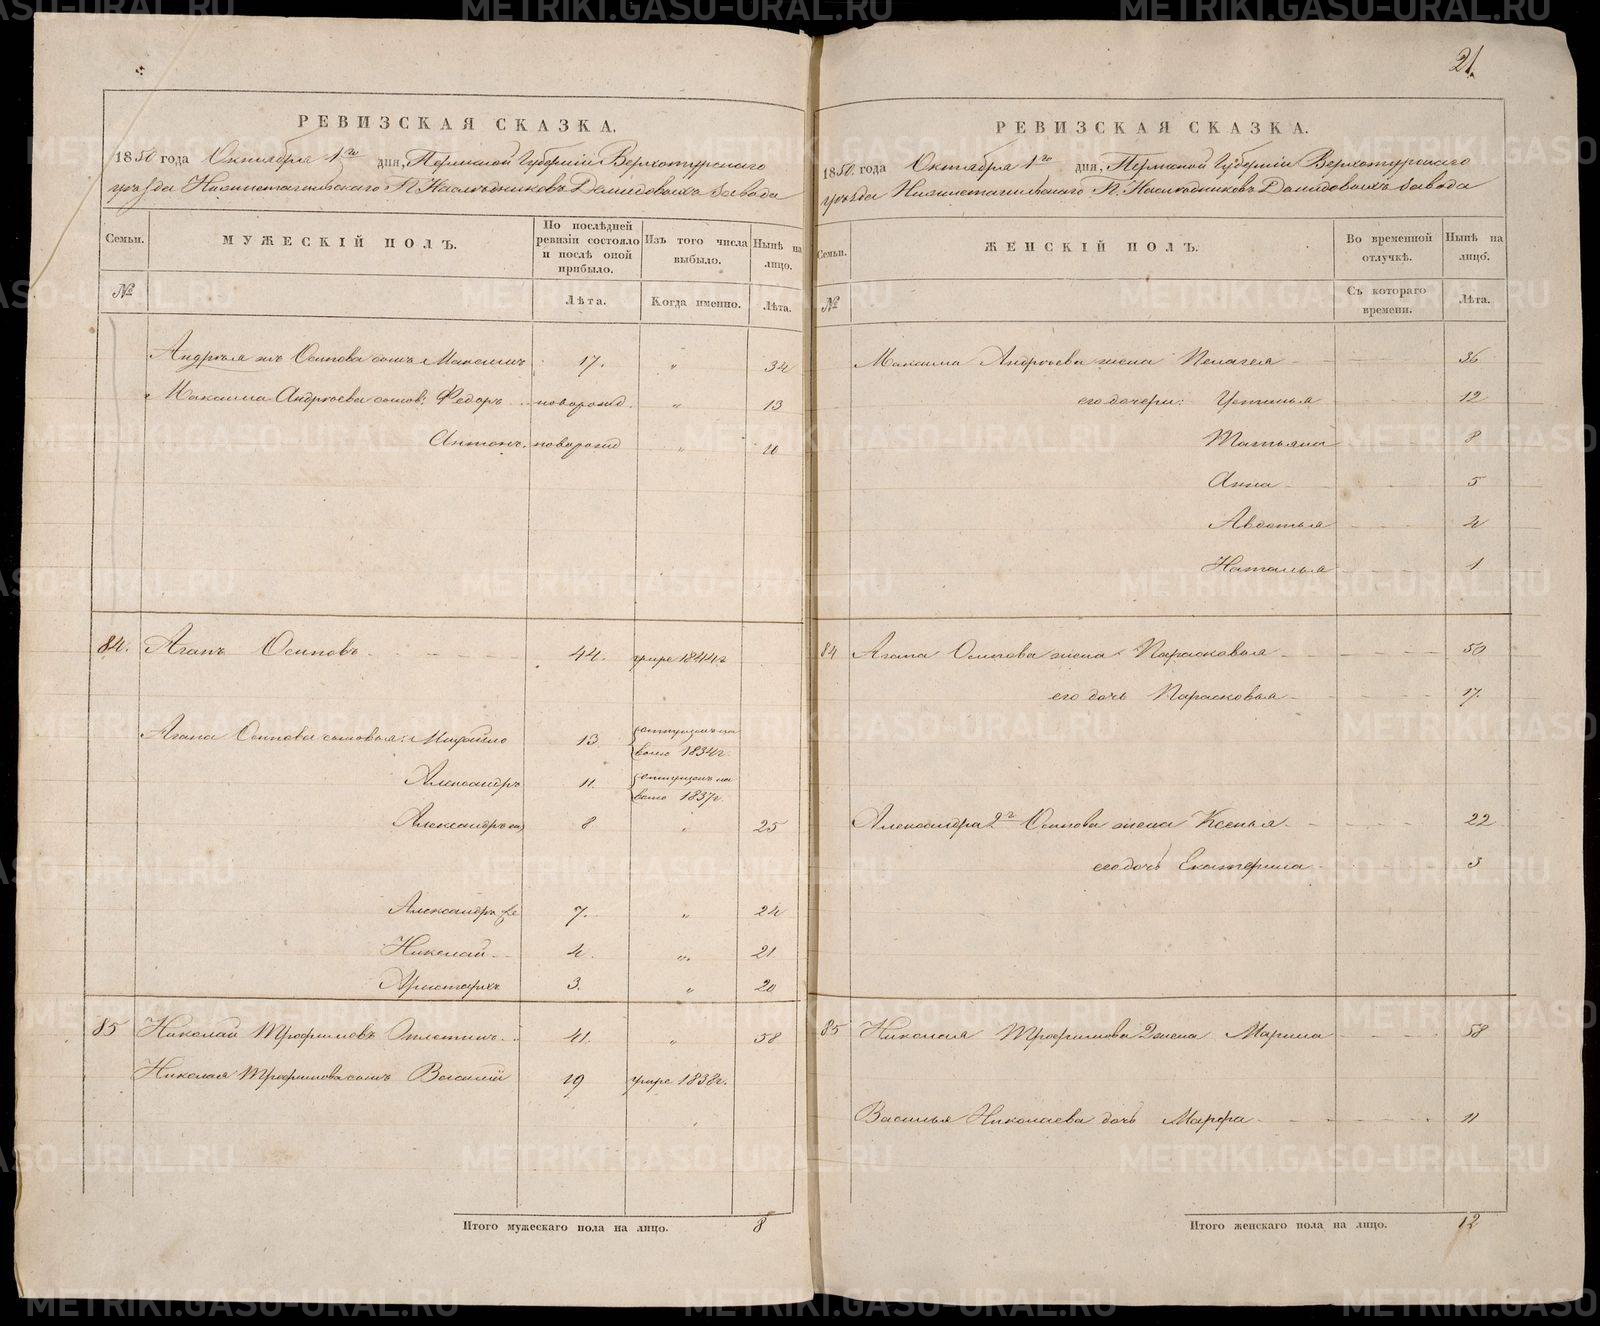 21.
РЕВИЗСКАЯ СКАЗКА.
1850 года Октября 1го дня, Пермской Губернiи Верхотурскаго
уѣзда Нижнетагильскаго П. Наслѣдниковъ Демидовыхъ завода
Семьи. МУЖЕСКIЙ ПОЛЪ. По послѣдней ревизiи состояло и послѣ оной прибыло. Изъ того числа выбыло. Нынѣ на лицо.
№ Лѣта. Когда именно. Лѣта.
Андрея Осипова сынъ Максимъ 17. " 34
Максима Андреева сынов: Федоръ новорожд. " 13
Антонъ новорожд "
84. Агапъ Осиповъ 44. умре 1844г
Агапа Осипова сыновья: Михайло 13 отпущенъ на волю 1834г.
Александръ 11. отпущенъ на волю 1837г.
Александръ 8 " 25
Александръ 7. " 24
Николай 4. " 21
Аристархъ 3. " 20
85 Николай Трофимовъ 41. " 58
Николая Трофимова сынъ Василий 19 умре 1838г.
Итого мужескаго пола на лицо. 8
РЕВИЗСКАЯ СКАЗКА.
1850. года Октября 1го дня, Пермской Губернiи Верхотурскаго
уѣзда Нижнетагильскаго П. Наслѣдниковъ Демидовыхъ завода
Семьи. ЖЕНСКIЙ ПОЛЪ. Во временной отлучкѣ. Нынѣ на лицо.
№ Съ котораго времени. Лѣта.
Максима Андреева жена Пелагея 36
его дочери: Устинья 12
Татьяна 8
Анна 5
Авдотья 4
Наталья 1
84 Агапа Осипова жена Парасковья 50
его дочь Парасковья 17.
Александра 2го Осипова жена Ксенья 22
его дочь Екатерина 3
85 Николая Трофимова 2 жена Марина 58
Василья Николаева дочь Марфа 11
Итого женскаго пола на лицо. 12
METRIKI.GASO-URAL.RU